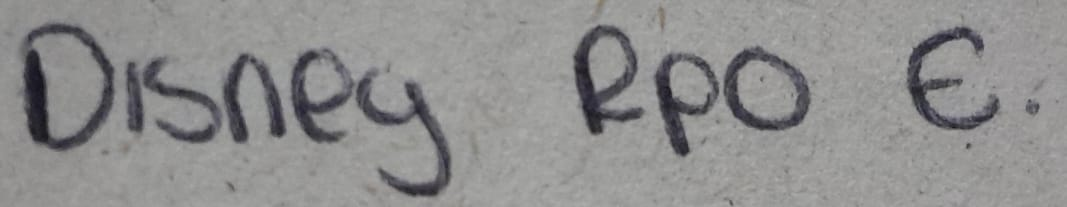 Disney RpO E.